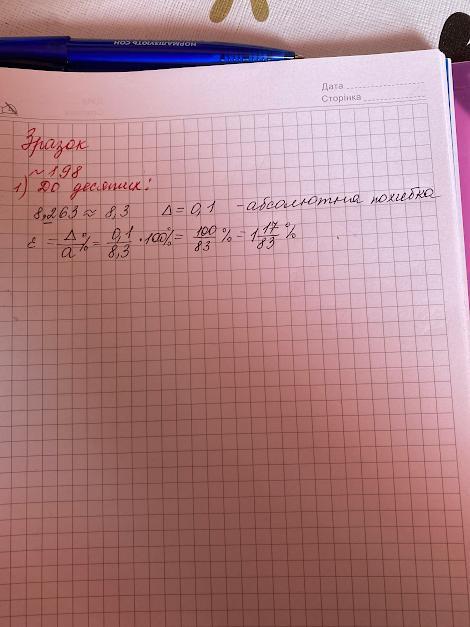 НОРМАЛІЗУЮТЬ СОН
Дата
Сторінка
Зразок
~198
1) До десятих:
8,263 ≈ 8,3 Δ = 0,1 - абсолютна похибка
ε = Δ/a % = 0,1/8,3 · 100% = 100/83 % = 1 17/83 %